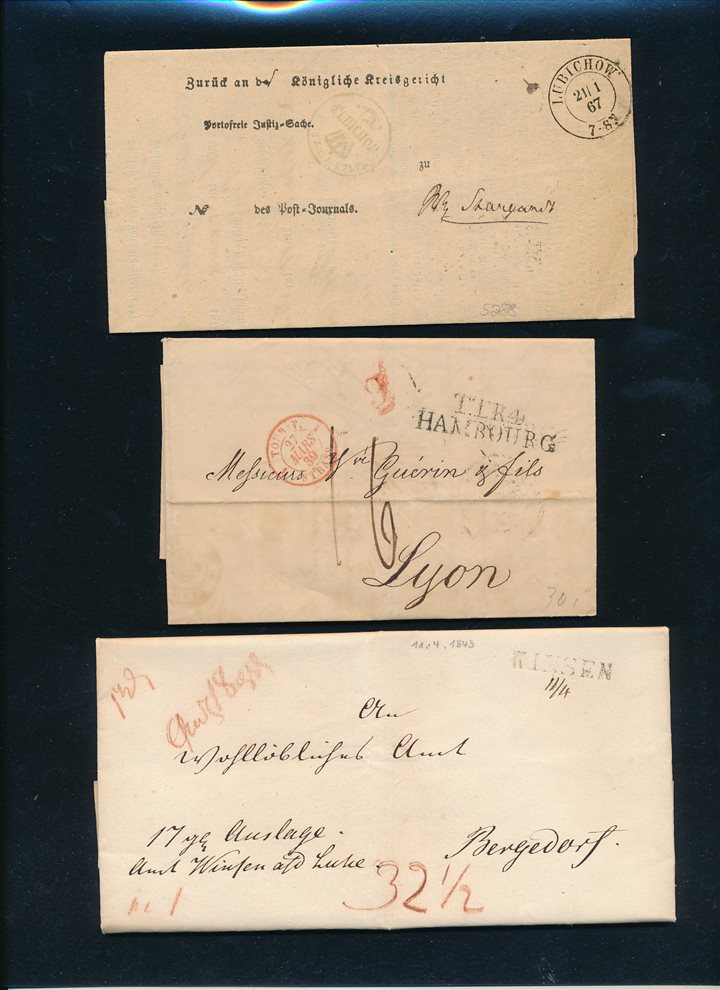 Zurück an d Königliche Kreisgericht
LUBICHOW
21 1
67
7-8N
Portofreie Justiz-Sache.
zu
№ des Post-Journals.
Stargardt
5258
T.T.R.4.
HAMBOURG
TOUR-T.
27
MARS
39
Messieurs Vve Guérin & fils
16
Lyon
30
11.4.1843
WINSEN
11/4
An
Wohllöbliches Amt
17 Auslage.
Amt Winsen a/d Luhe.
Bergedorf.
32 1/2